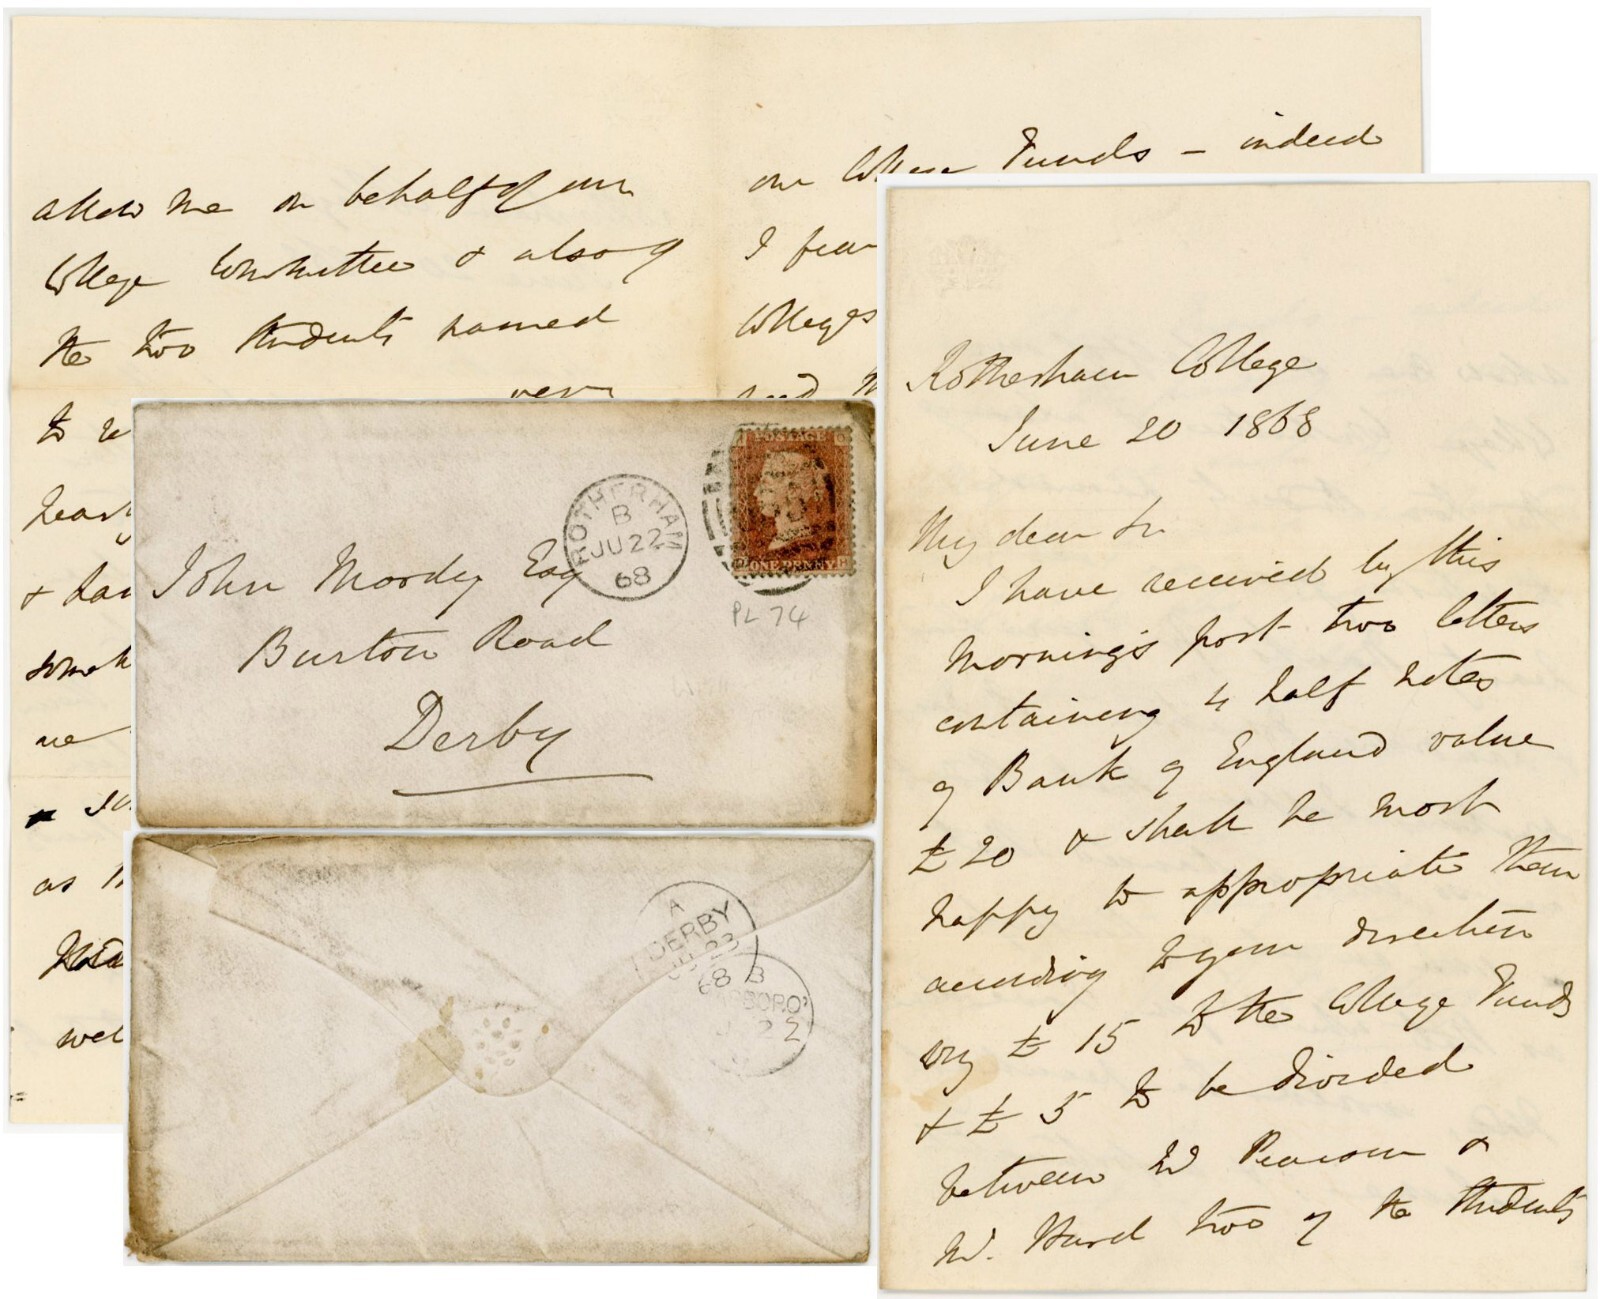 allow me on behalf of our
College Committee & also of
the two students named
very
to
heart
& har
somet
we
as
wel
our College Funds – indeed
I fear
Colleges
Rotherham College
June 20 1868
My dear Sir
I have received by this
morning's post two letters
containing 4 half notes
of Bank of England value
£20 & shall be most
happy to appropriate them
according to your direction
say £15 to the College Funds
& £5 to be divided
between W Pearson &
W. Hurd two of the students
ROTHERHAM
B
JU 22
68
POSTAGE
ONE PENNY
PL 74
John Moody Esq
Burton Road
Derby
A
DERBY
23
68
B
SBORO'
22